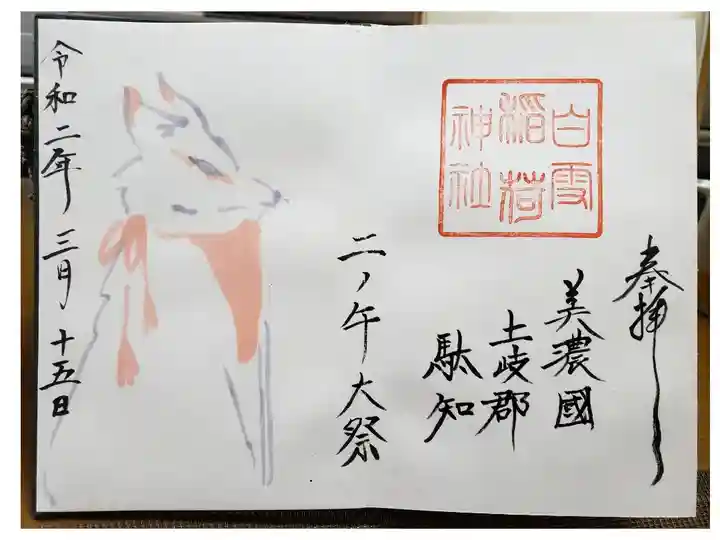 奉拝
白雪
稲荷
神社
美濃國
土岐郡
駄知
二ノ午大祭
令和二年三月十五日